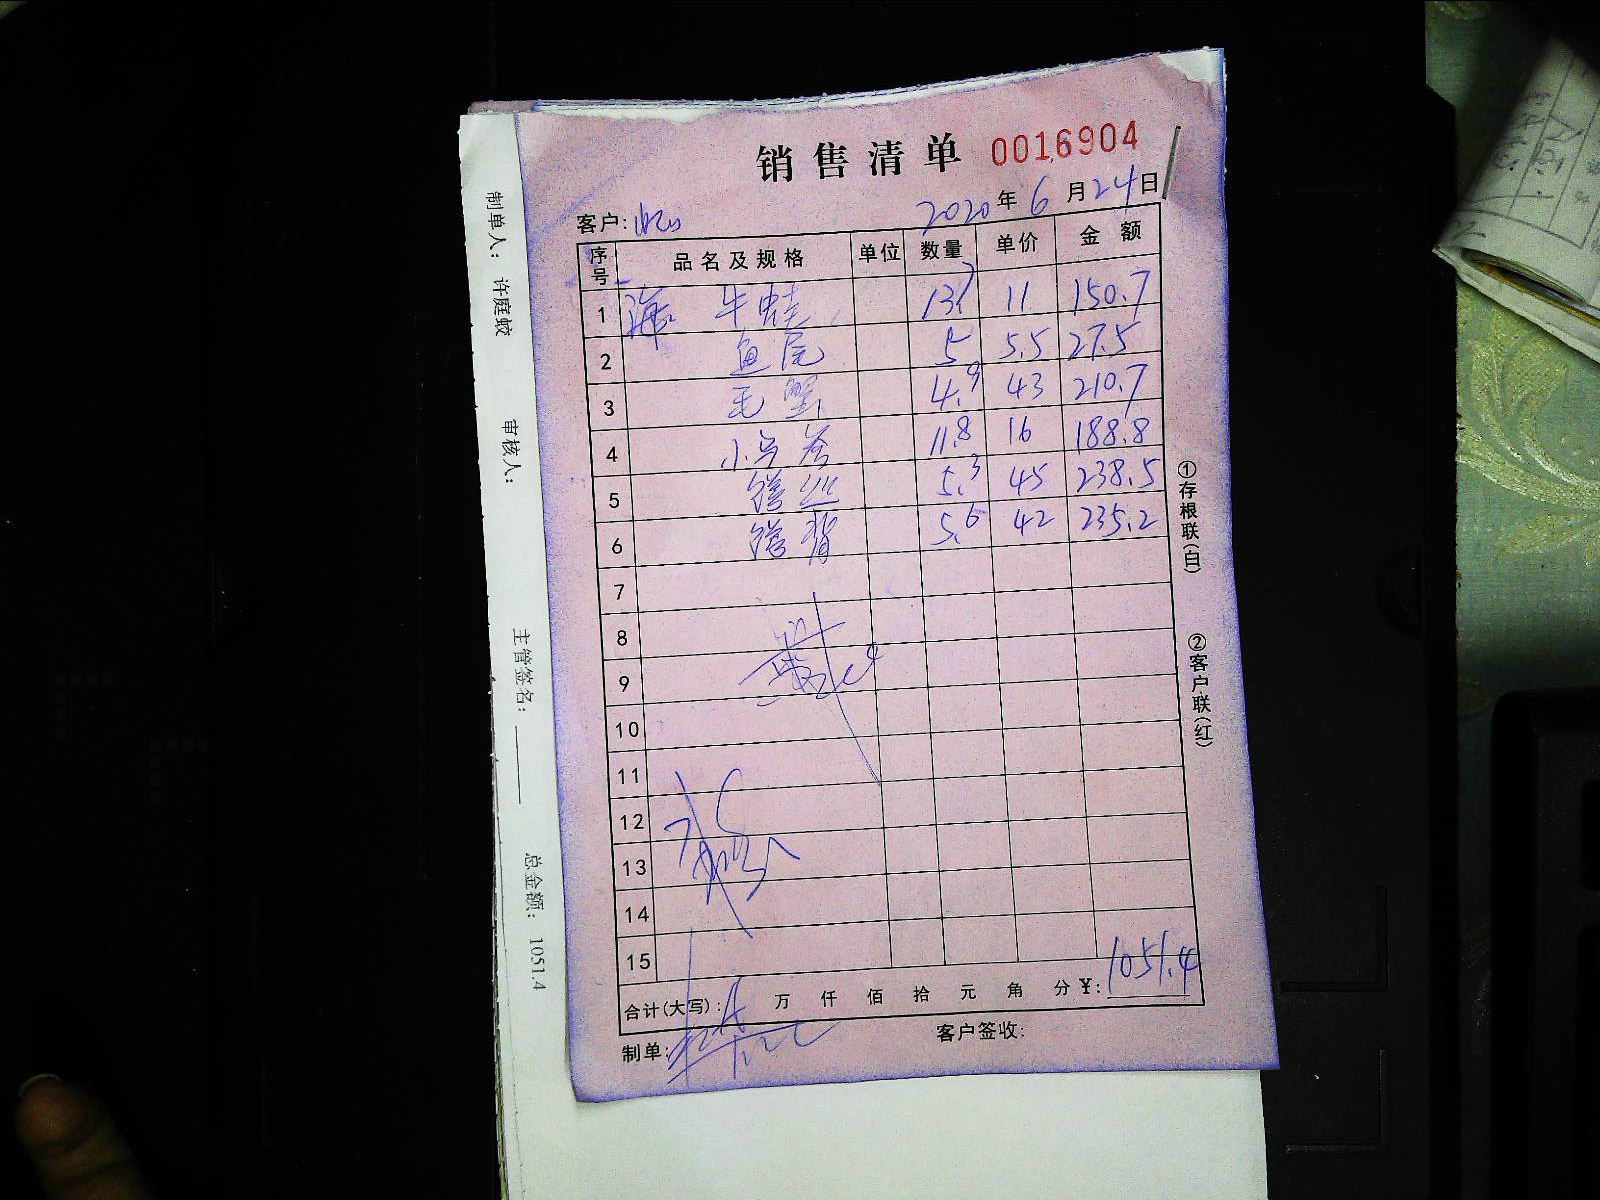 销售清单 0016904
2020年6月24日
客户:
序号 品名及规格 单位 数量 单价 金额
1 牛蛙 13.7 11 150.7
2 鱼尾 5 5.5 27.5
3 毛蟹 4.9 43 210.7
4 小 11.8 16 188.8
5 5.3 45 238.5
6 5.6 42 235.2
7
8
9
10
11
12
13
14
15
合计(大写): 万 仟 佰 拾 元 角 分 ¥: 1051.4
制单: 客户签收:
①存根联(白)
②客户联(红)
制单人: 许庭蛟 审核人: 主管签名: 总金额: 1051.4